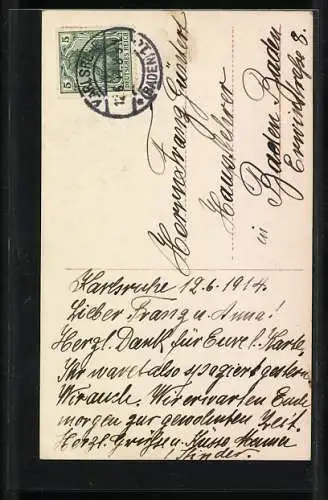 KARLSRUHE
(BADEN)
5
5
Herrn Franz Günter
Hauptlehrer
in
Baden Baden
Erwinstraße 8.
Karlsruhe 12.6.1914.
Lieber Franz u. Anna!
Herzl. Dank für Eure l. Karte.
Ihr waret also gestern
Wir erwarten Euch
morgen zur gewohnten Zeit.
Herzl. Grüße u. Küsse Mama
Kinder.